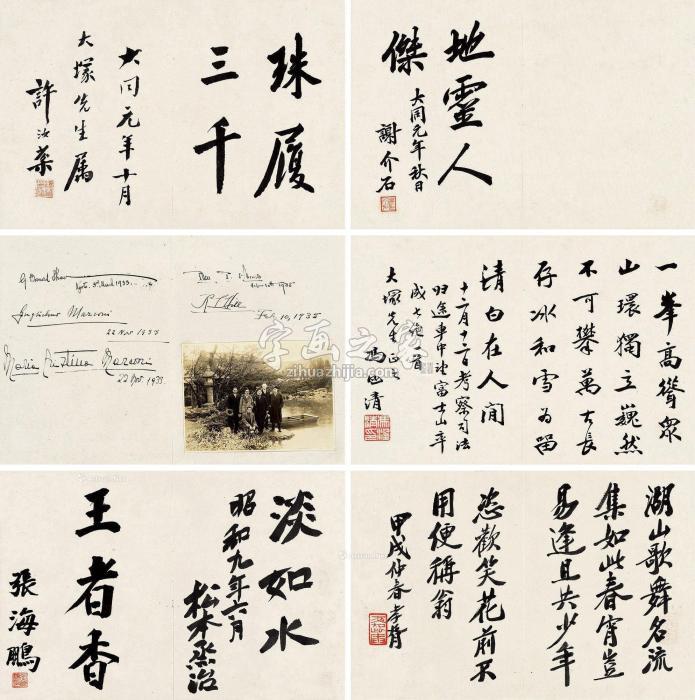 珠履
三千
大同元年十月
大塚先生属
許汝棻
地靈人
傑
大同元年秋日
謝介石
G. Bernard Shaw
Kyoto. 3rd March 1933.
Guglielmo Marconi
22 Nov 1933
Maria Cristina Marconi
22 Nov. 1933.
1935
Feb 10, 1935
字画之家
zihuazhijia.com
一峯高聳眾
山環獨立巍然
不可攀萬古長
存冰和雪為留
清白在人间
十二月十二日考察司法
归途車中望富士山率
成七絶一首
大塚先生正之
馮涵清
淡如水
昭和九年六月
松本烝治
王者香
張海鵬
湖山歌舞名流
集如此春宵豈
易逢且共少年
恣歡笑花前不
用便稱翁
甲戌仲春孝胥